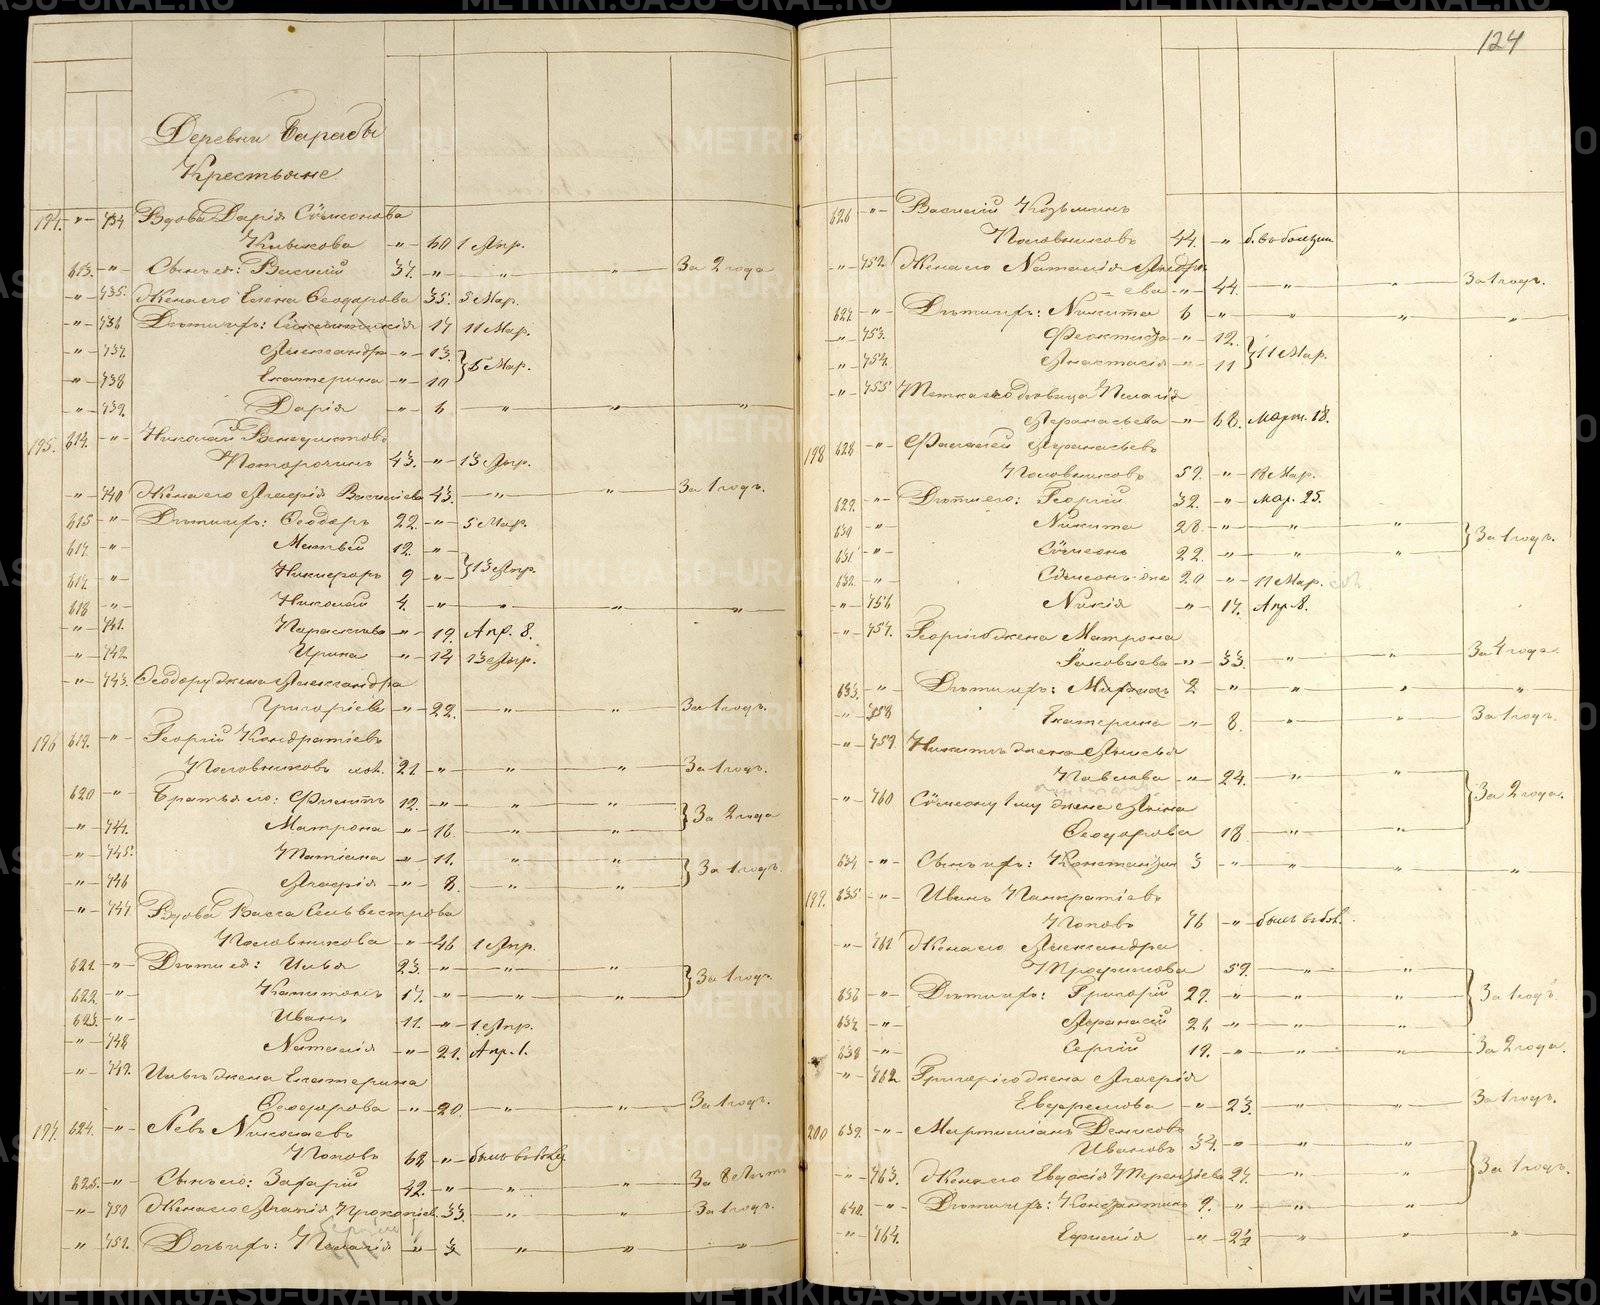 124
Деревни Барабы
Крестьяне
194. " 734 Вдова Дарія Сѵмеонова
Килькова " 60 1 Апр.
613. " Сынъ ея: Василій 37. " " " За 2 года
" 735. Жена его Елена Ѳеодорова " 35. 5 Мар.
" 736 Дѣти ихъ: " 17 11 Мар.
" 737. Александра " 13. } 5 Мар.
" 738 Екатерина " 10
" 739. Дарія " 6 " " "
195. 614. " Николай Венедиктовъ
Поторочинъ 43. " 13 Апр.
" 740 Жена его Агафія Васильева 43. " " За 1 годъ.
615 " Дѣти ихъ: Ѳеодоръ 22. " 5 Мар.
" Матвѣй 12. " } 13 Апр.
617. " Никифоръ 9 "
618 " Николай 4. " " " "
" 741. Параскева " 19. Апр. 8.
" 742. Ирина " 14 13 Апр.
" 743. Ѳеодору жена Александра
Григоріева " 22. " " За 1 годъ.
196 619. " Георгій Кондратіевъ
Половниковъ 21 " " " За 1 годъ.
620 " Братья его: Филиппъ 12. " " " } За 2 года
" 744. Матрона " 16. " "
" 745. Татіана " 11. " " } За 1 годъ.
" 746 Агафія " 8. " "
" 747 Вдова Васса Сельвестрова
Половникова " 46 1 Апр.
621. " Дѣти ея: Илья 23. " " " } За 1 годъ
622. " Капитонъ 17. " " "
623. " Иванъ 11. " 1 Апр.
" 748 Наталія " 21. Апр. 1.
" 749. Ильѣ жена Екатерина
Ѳеодорова " 20. " " За 1 годъ.
197. 624. " Левъ Николаевъ
Поповъ 68 " былъ въ
625. " Сынъ его: Захарій 42. " " " За 8 лѣтъ
" 750 Жена его Агапія Прокопіев. 33. " " За 1 годъ.
" 751. Дочь ихъ: Пелагія " 3 " " "
626 " Василій Козьминъ
Половниковъ 44. " б. въ болѣзни
" 752. Жена его Наталія Андре-
ева " 44. " " За 1 годъ.
627. " Дѣти ихъ: Никита 6 " " " "
" 753. Феоктиста " 12. } 11 Мар.
" 754. Анастасія " 11
" 755 Тетка его дѣвица Пелагія
Афанасьева " 68. Март. 18.
198 628 " Фалалей Афанасьевъ
Половниковъ 59. " 18 Мар.
629. " Дѣти его: Георгій 32. " Мар. 25.
630 " Никита 28. " " " } За 1 годъ.
631. " Сѵмеонъ 22. " " "
632. " Сѵмеонъ же 20 " 11 Мар.
" 756 Лидія " 17. Апр. 8.
" 757. Георгію жена Матрона
Яковлева " 33. " " За 4 года.
633. " Дѣти ихъ: 2 " " " "
" 758 Екатерина " 8. " " За 1 годъ.
" 759. Никитѣ жена Анисья
Павлова " 24. " " } За 2 года.
" 760 Сѵмеону 1му жена Анна
Ѳеодорова 18. " "
634 " Сынъ ихъ: Константинъ 3 " " " "
199. 635 " Иванъ Панкратіевъ
Поповъ 76 " былъ въ бол.
" 761 Жена его Александра
Трофимова 59. " " } За 1 годъ.
636 " Дѣти ихъ: Григорій 29. " " "
637. " Афанасій 26 " " "
638 " Сергій 19. " " " За 2 года.
" 762 Григорію жена Агафія
Ефремова " 23. " " За 1 годъ.
200 639. " Мартиніанъ Денисовъ
Ивановъ 34. " " " } За 1 годъ.
" 763. Жена его Евдокія Терентьева 27. " "
640. " Дѣти ихъ: Константинъ 9. " " "
" 764. Евфимія " 2½ " " "
METRIKI.GASO-URAL.RU